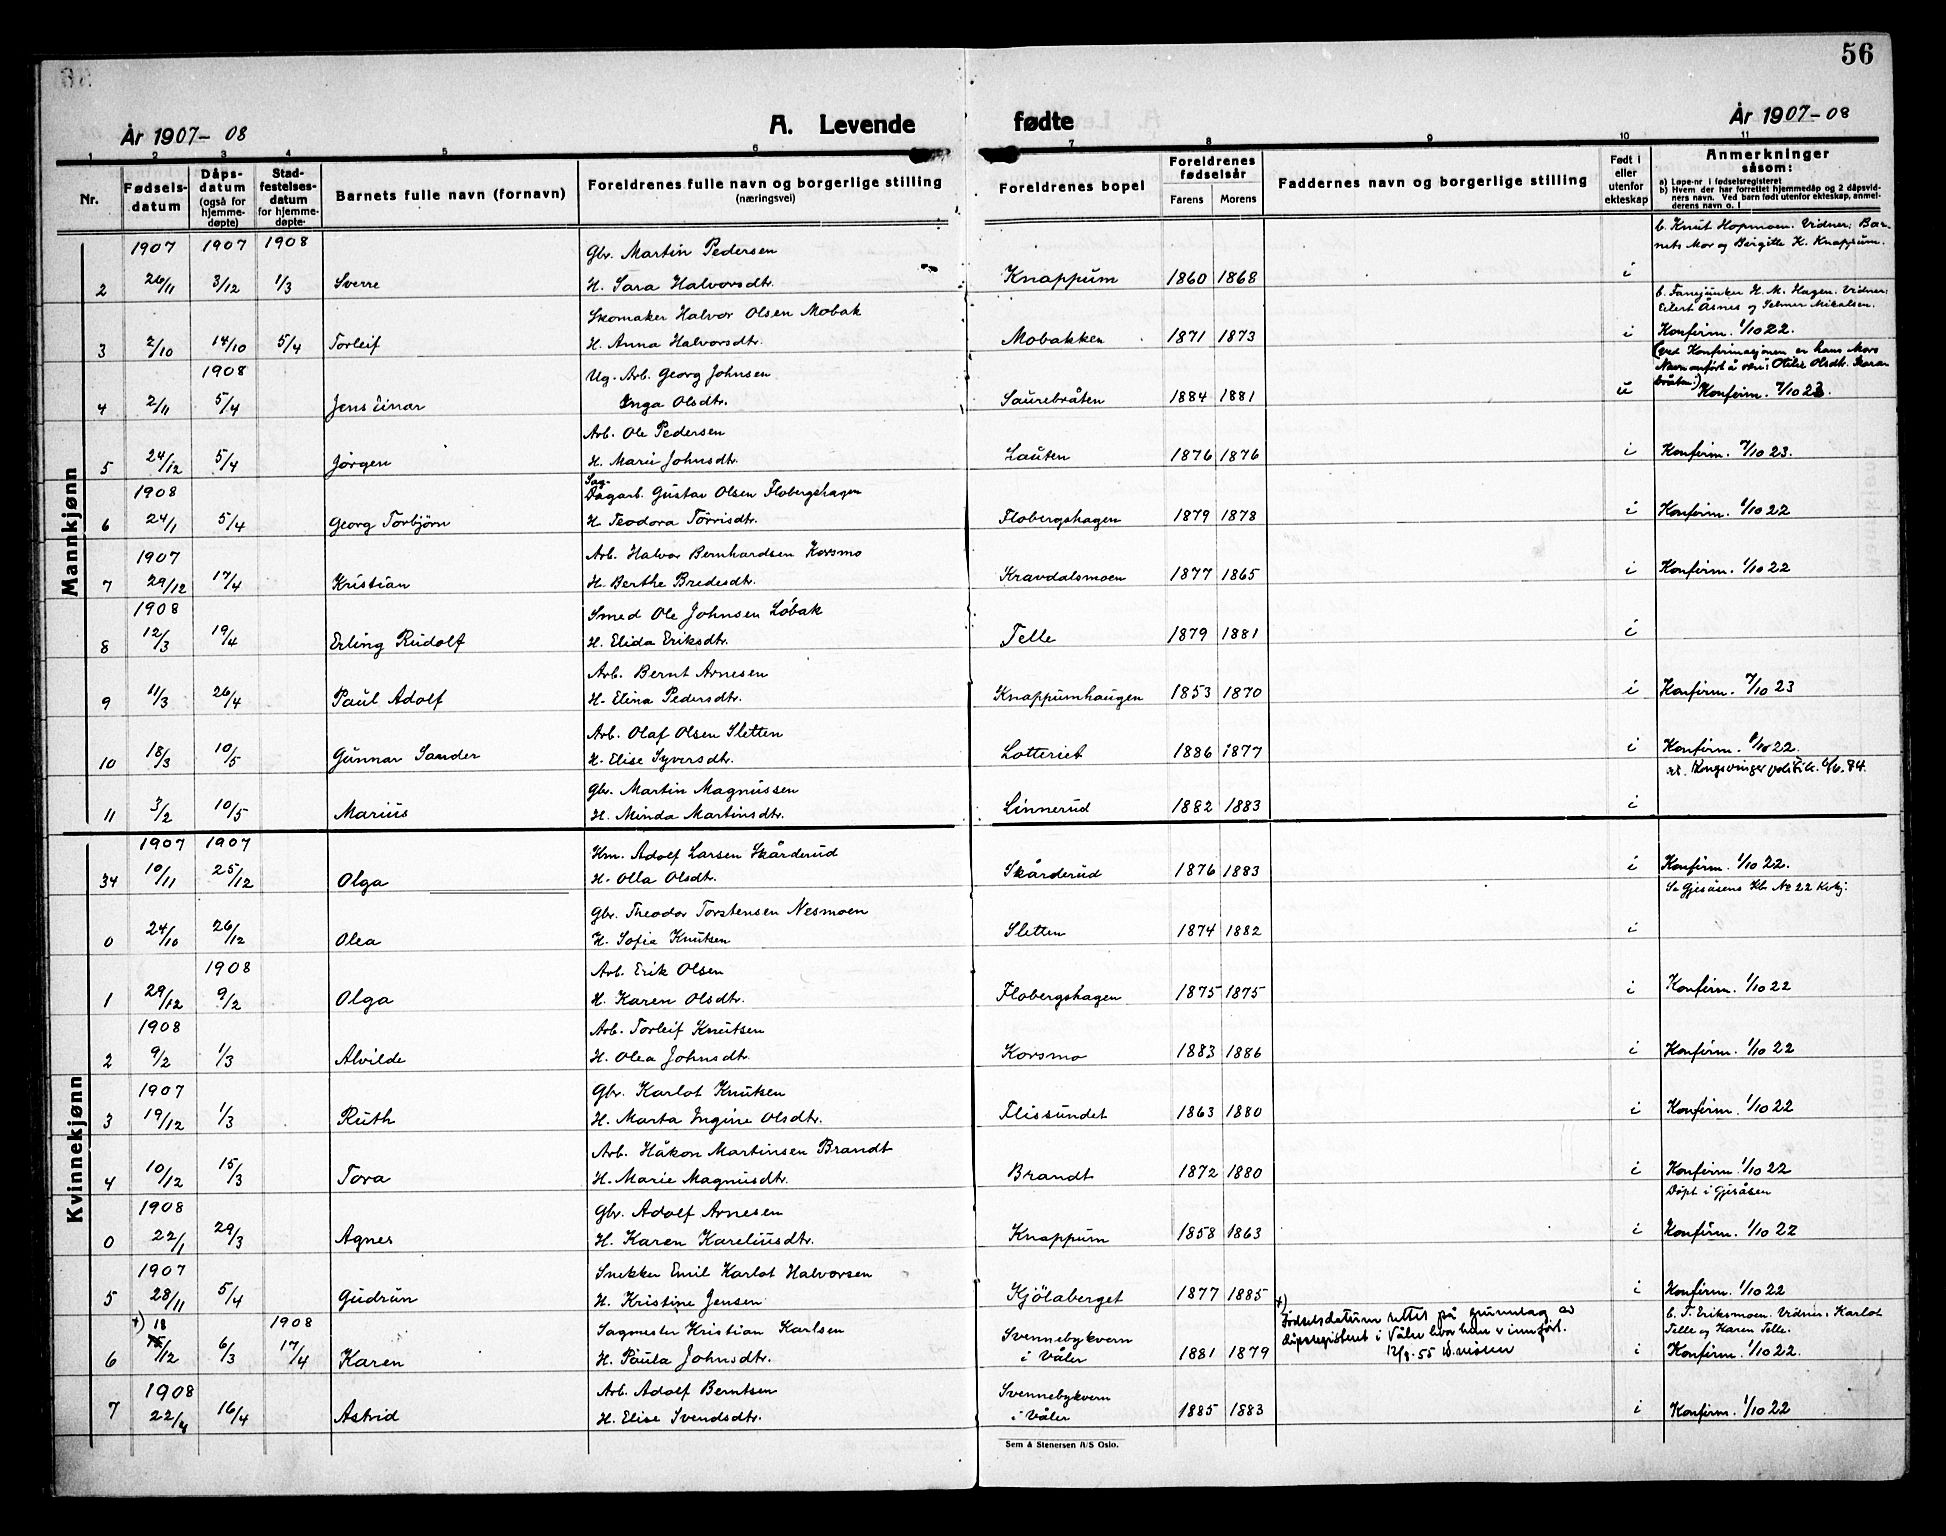 56
År 1907-08
A. Levende
fødte
År 1907-08
1 2 3 4 5 6 7 8 9 10 11
Nr. | Fødselsdatum | Dåpsdatum (også for hjemmedøpte) | Stadfestelsesdatum for hjemmedøpte. | Barnets fulle navn (fornavn) | Foreldrenes fulle navn og borgerlige stilling (næringsvei) | Foreldrenes bopel | Foreldrenes fødselsår Farens Morens | Faddernes navn og borgerlige stilling | Født i eller utenfor ekteskap | Anmerkninger såsom: a) Løpe-nr i fødselsregisteret b) Hvem der har forrettet hjemmedåp og 2 dåpsvidners navn. Ved barn født utenfor ekteskap, anmelderens navn o. l
Mannkjønn
1907 1907 1908 Gbr. Martin Pedersen b. Knut Hopmoen. Vidner: Barnets Mor og Birgitte K. Knappum.
2 26/11 3/12 1/3 Sverre H. Sara Halvorsdtr. Knappum 1860 1868 i
Skomaker Halvor Olsen Mobak b. Fanejunker H. M. Hagen. Vidner: Eilert Åsnes og Selmer Mikalsen.
3 2/10 14/10 5/4 Torleif H. Anna Halvorsdtr. Mobakken 1871 1873 i Konfirm. 1/10 22.
1908 Ug. Arb. Georg Johnsen (ved Konfirmasjonen er hans Mors Navn anført å være: Otilie Olsdt.
4 2/11 5/4 Jens Einar Inga Olsdtr. Saurebråten 1884 1881 u Konfirm. 7/10 23.
Arb. Ole Pedersen
5 24/12 5/4 Jørgen H. Marie Johnsdtr. Lauten 1876 1876 i Konfirm. 7/10 23.
1908 Sag- Dagarb. Gustav Olsen Flobergshagen
6 24/1 5/4 Georg Torbjörn H. Teodora Törrisdtr. Flobergshagen 1879 1878 i Konfirm. 1/10 22
1907 Arb. Halvor Bernhardsen Korsmo
7 29/12 17/4 Kristian H. Berthe Bredesdtr. Kravdalsmoen 1877 1865 i Konfirm. 1/10 22
1908 Smed Ole Johnsen Löbak
8 12/3 19/4 Erling Rudolf H. Elida Eriksdtr. Telle 1879 1881 i
Arb. Bernt Arnesen
9 11/3 26/4 Paul Adolf H. Elina Pedersdtr. Knappumhaugen 1853 1870 i Konfirm. 7/10 23
Arb. Olaf Olsen Sletten
10 18/3 10/5 Gunnar Sander H. Elise Syversdtr. Lotteriet 1886 1877 i Konfirm. 1/10 22.
Gbr. Martin Magnussen
11 3/2 10/5 Marius H. Minda Martinsdtr. Linnerud 1882 1883 i
Kvinnekjønn
1907 1907 Km. Adolf Larsen Skårderud
34 10/11 25/12 Olga H. Olla Olsdt. Skårderud 1876 1883 i Konfirm. 1/10 22.
Gbr. Theodor Torstensen Nesmoen Se Gjesåsens Kb. No 22 Kvkj.
0 24/10 26/12 Olea H. Sofie Knutsen Sletten 1874 1882 i
1908 Arb. Erik Olsen
1 29/12 9/2 Olga H. Karen Olsdtr. Flobergshagen 1875 1875 i Konfirm. 1/10 22
1908 Arb. Torleif Knutsen
2 9/2 1/3 Alvilde H. Olea Johnsdtr. Korsmo 1883 1886 i Konfirm. 1/10 22
1907 Gbr. Karlot Knutsen
3 19/12 1/3 Ruth H. Marta Ingine Olsdtr. Flissundet 1863 1880 i Konfirm. 1/10 22
Arb. Håkon Martinsen Brandt
4 10/12 15/3 Tora H. Marie Magnusdtr. Brandt 1872 1880 i Konfirm. 1/10 22
1908 Gbr. Adolf Arnesen Döpt i Gjesåsen
0 22/1 29/3 Agnes H. Karen Kareliusdtr. Knappum 1858 1863 i Konfirm. 1/10 22
1907 Snekker Emil Karlot Halvorsen
5 28/11 5/4 Gudrun H. Kristine Jensen Kjölaberget 1877 1885 i Konfirm. 1/10 22
+) 18 1908 Sagmester Kristian Karlsen Svennebykvern +) Fødselsdatum rettet på grunnlag av dåpsregisteret i Våler hvor hun er innfört. 12/9-55 b. T. Eriksmoen. Vidner: Karlot Telle og Karen Telle.
6 15/12 6/3 17/4 Karen H. Paula Johnsdtr. i Våler 1881 1879 i Konfirm. 1/10 22.
1908 Arb. Adolf Berntsen Svennebykvern
7 22/4 16/4 Astrid H. Elise Svendsdtr. i Våler 1885 1883 i Konfirm. 1/10 22
Sem & Stenersen A/S Oslo.